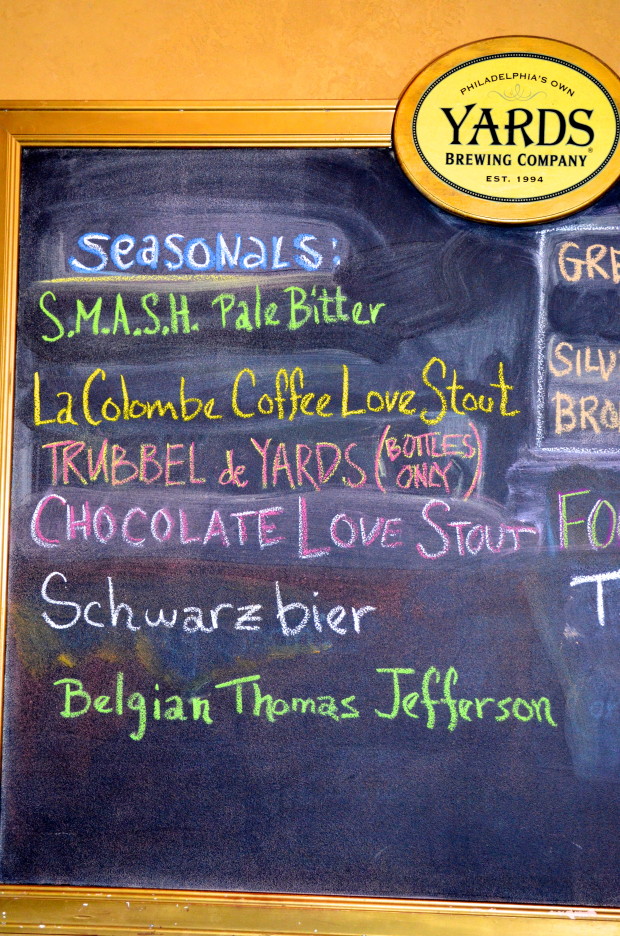 PHILADELPHIA'S OWN
YARDS
BREWING COMPANY®
EST. 1994
SEASONALS:
S.M.A.S.H. Pale Bitter
La Colombe Coffee Love Stout
TRUBBEL de YARDS (BOTTLES ONLY)
CHOCOLATE LOVE STOUT
Schwarzbier
Belgian Thomas Jefferson